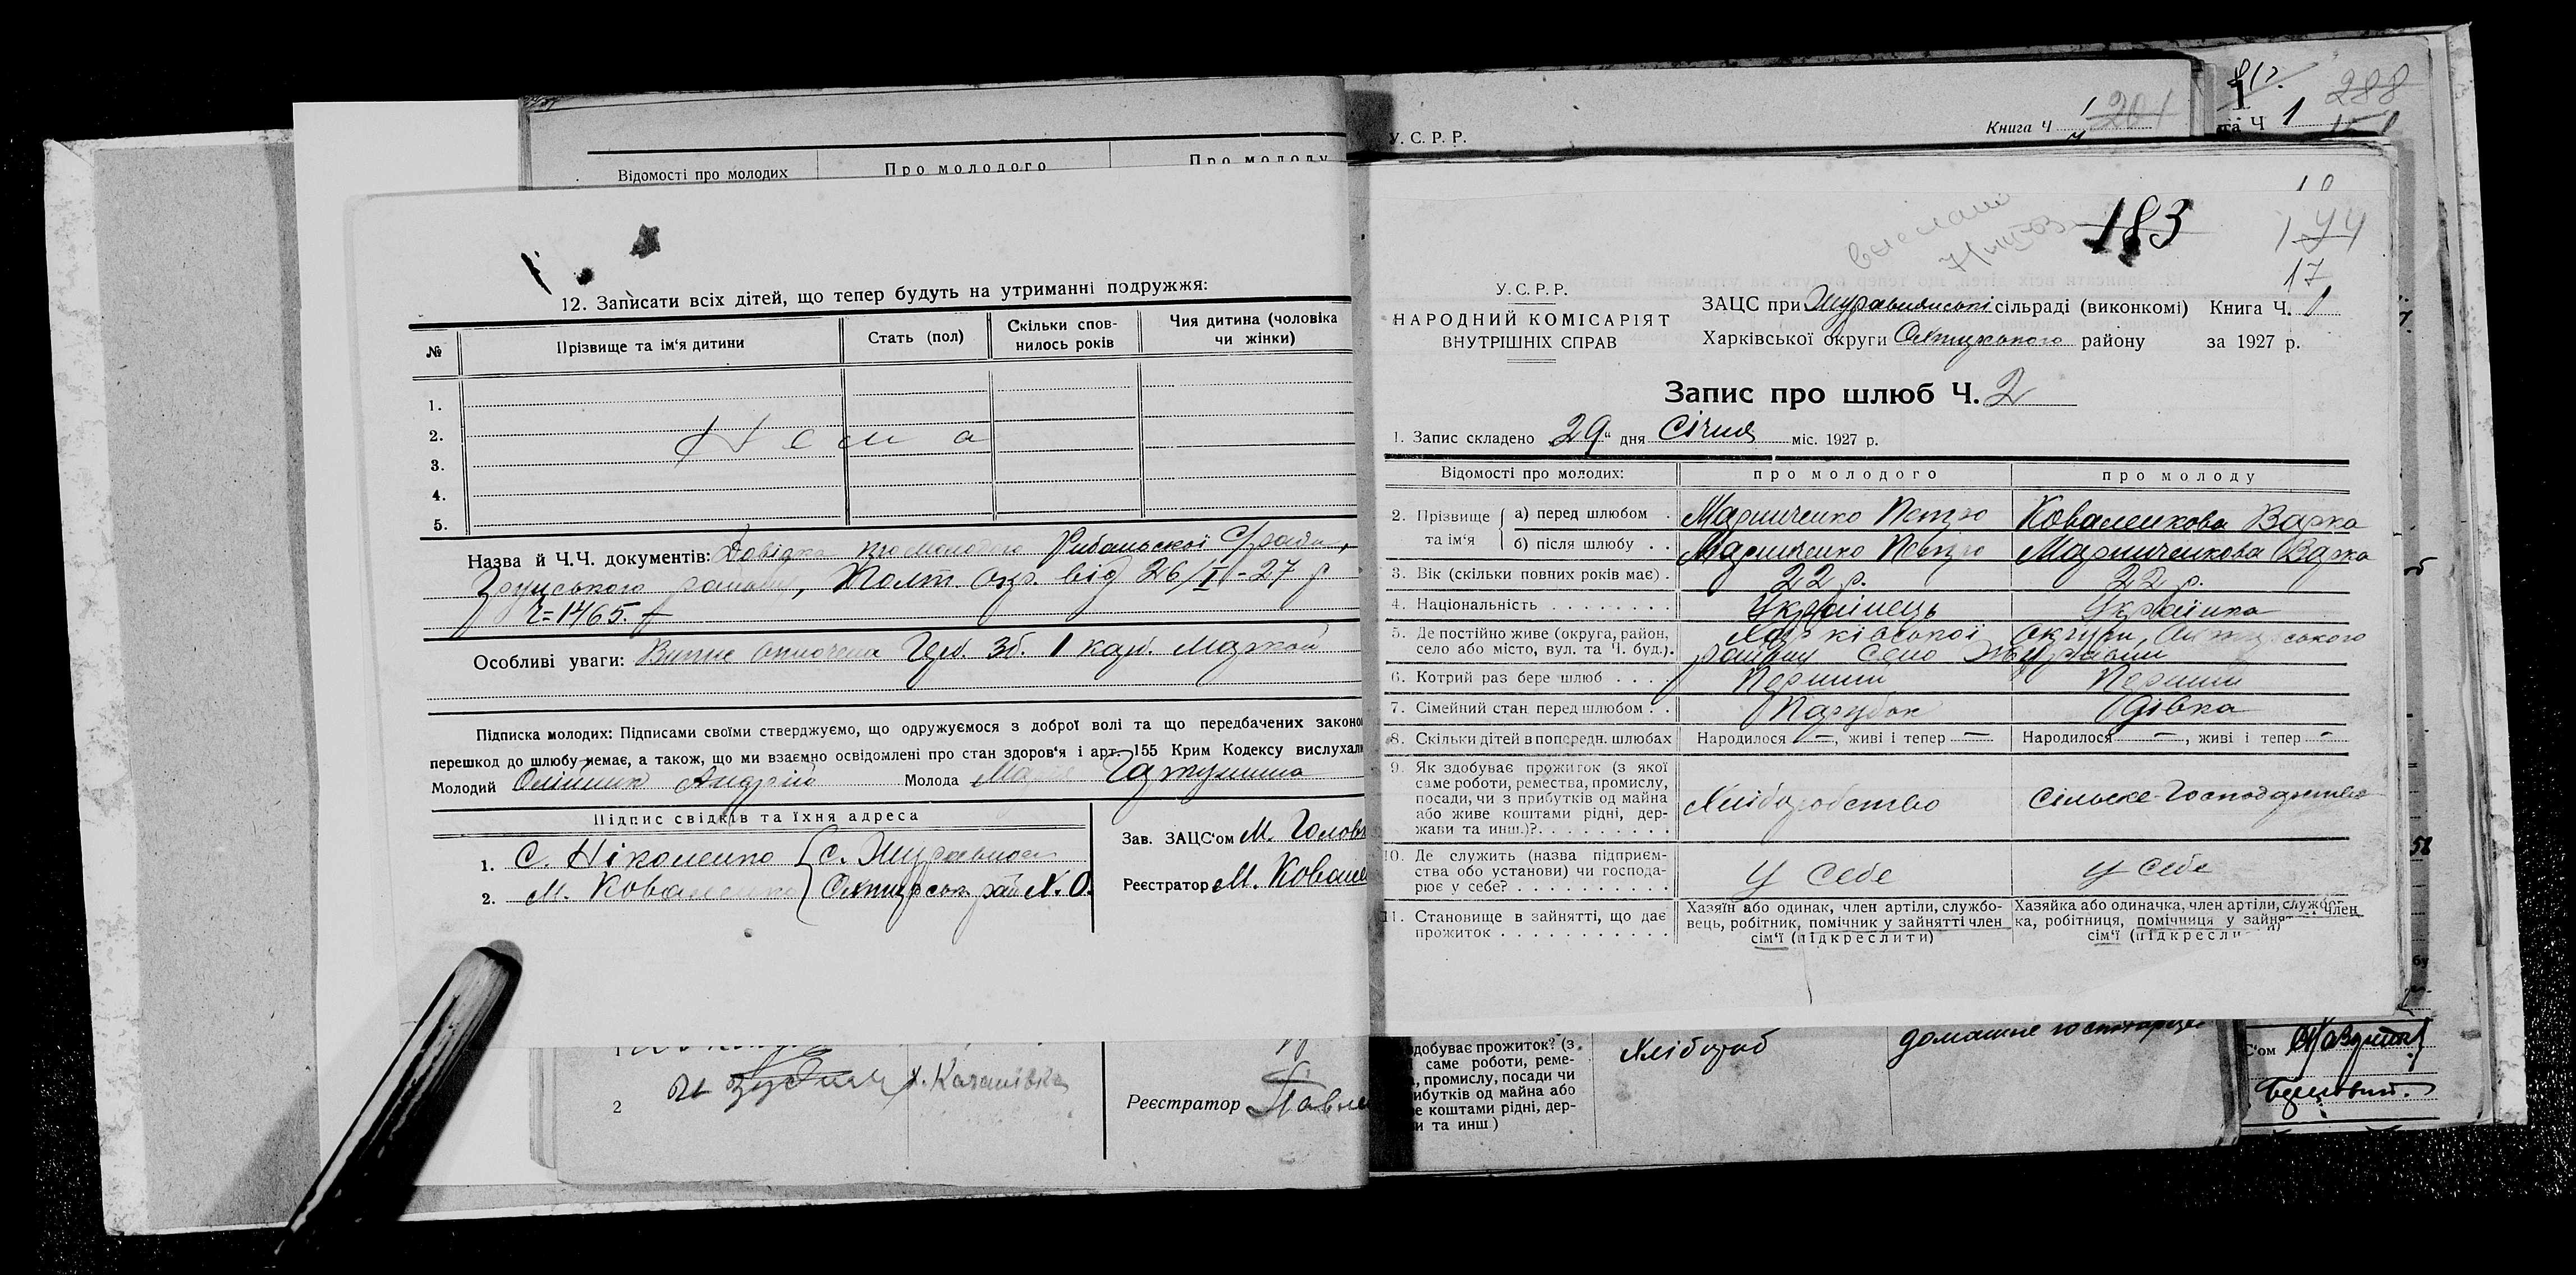 Відомості про молодих Про молодого Про молоду
12. Записати всіх дітей, що тепер будуть на утриманні подружжя:
№ Прізвище та ім'я дитини Стать (пол) Скільки спов-нилось років Чия дитина (чоловіка чи жінки)
1.
2. Нема
3.
4.
5.
Назва й Ч.Ч. документів: Довідка про молодого Рибальскої С/ради,
району, Полт. окр. від 26/I-27 р
Ч=1465.
Особливі уваги: Гер. Зб. 1 карб. маркой
Підписка молодих: Підписами своїми стверджуємо, що одружуємося з доброї волі та що передбачених законо
перешкод до шлюбу немає, а також, що ми взаємно освідомлені про стан здоров'я і арт. 155 Крим Кодексу вислухал
Молодий Олійник Андрій Молода
Підпис свідків та їхня адреса
1. С. Ніколенко с. Журавное
2. М. Коваленко Охтирськ. рай Х. О.
Зав. ЗАЦС'ом М. Голов
Реєстратор М. Ковале
2 х. Качанівка
Реєстратор Павле
У. С. Р. Р. Книга Ч 1 201
та Ч 1
288
183
144
17
У.С.Р.Р.
НАРОДНИЙ КОМІСАРІЯТ
ВНУТРІШНІХ СПРАВ
ЗАЦС при Журавнянські сільраді (виконкомі) Книга Ч. 1
Харківської округи Охтирського району за 1927 р.
Запис про шлюб Ч. 2
1. Запис складено „29" дня Січня міс. 1927 р.
Відомості про молодих: про молодого про молоду
2. Прізвище та ім'я
а) перед шлюбом . Марниченко Петро Коваленкова Варка
б) після шлюбу . . Марниченко Петро Марниченкова Варка
3. Вік (скільки повних років має) . 22 р. 22 р.
4. Національність . . . . . . . . Українець Українка
5. Де постійно живе (округа, район, Харківської округи, Охтирського
село або місто, вул. та Ч. буд.). району Село Журавни
6. Котрий раз бере шлюб . . . . Перший Перший
7. Сімейний стан перед шлюбом . . Парубок Дівка
8. Скільки дітей в попередн. шлюбах Народилося —, живі і тепер — Народилося —, живі і тепер —
9. Як здобуває прожиток (з якої
саме роботи, ремества, промислу,
посади, чи з прибутків од майна
або живе коштами рідні, дер-
жави та инш.)?. . . . . . . . . .
Хліборобство Сільске-Господарство
10. Де служить (назва підприєм-
ства обо установи) чи господа-
рює у себе? . . . . . . . . . . .
У себе У себе
11. Становище в зайнятті, що дає
прожиток . . . . . . . . . . . .
Хазяїн або одинак, член артіли, службо-
вець, робітник, помічник у зайнятті член
сім'ї (підкреслити)
Хазяйка або одиначка, член артіли, службов-
ка, робітниця, помічниця у зайнят член
сім'ї (підкресли
здобуває прожиток? (з
саме роботи, реме-
, промислу, посади чи
ибутків од майна або
е коштами рідні, дер-
и та инш)
Хлібороб домашне
С'ом